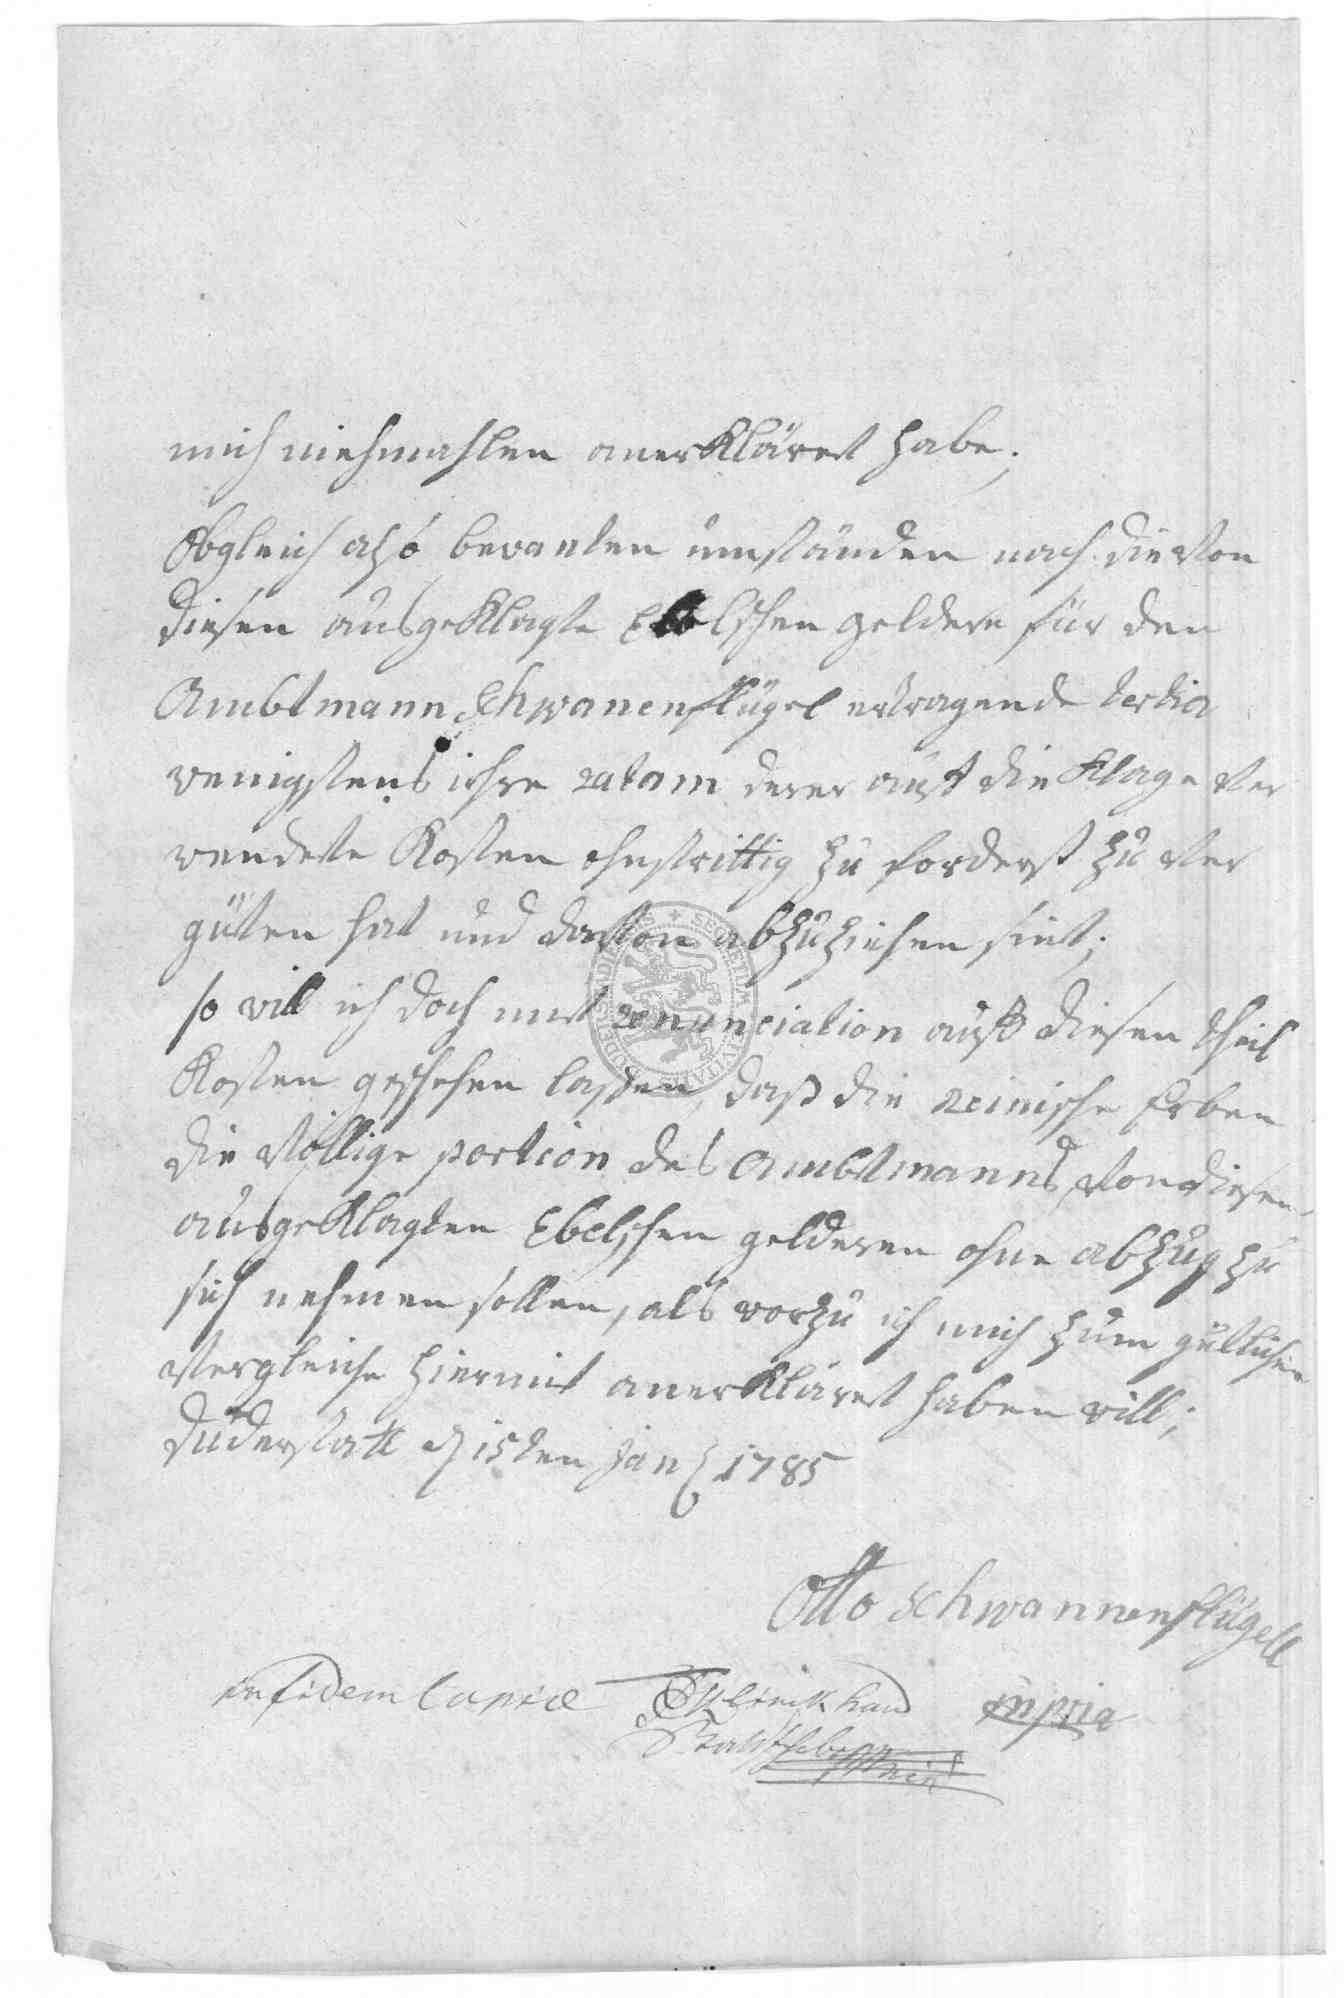 mich niehmahlen anerkläret habe;
Obgleich also bewanten umständen nach die von
diesen ausgeklagte Ebelschen geldere für den
Ambtmann Schwanenflügel ertragende tertia
wenigstens ihre ratam derer auf die Klage ver
wendete Kosten ohnstrittig zu forderst zu ver
güten hat und davon abzuziehen sint;
so will ich doch mit renunciation auf diesen theil
Kosten geschehen laßen, daß die reinische Erben
die völlige portion des Ambtmanns von diesen
ausgeklagten Ebelschen gelderen ohne abzug zu
sich nehmen sollen, als worzu ich mich zum gütlichen
vergleiche hiermit anerkläret haben will;
Duderstatt d 15ten Jan 1785
Otto Schwannenflügell
in fidem Copiæ
mpria
SECRETUM CIVITATIS